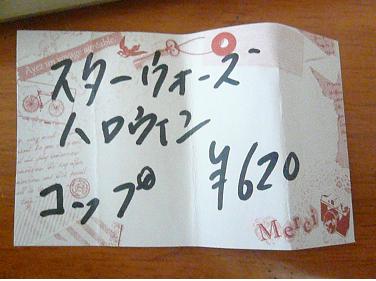 スターウォーズ
ハロウィン
コップ ¥620
Merci